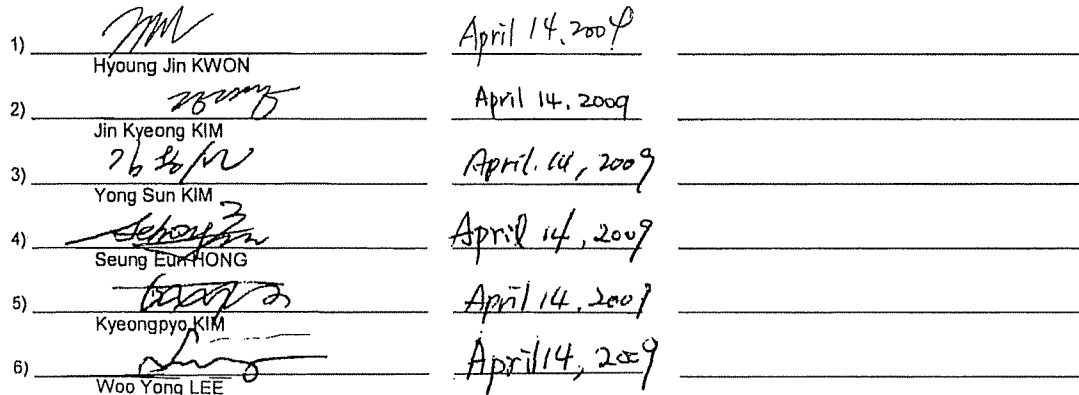 1) April 14, 2009
Hyoung Jin KWON
2) April 14, 2009
Jin Kyeong KIM
3) April. 14, 2009
Yong Sun KIM
4) April 14, 2009
Seung Eun HONG
5) April 14, 2009
Kyeongpyo KIM
6) April 14, 2009
Woo Yong LEE